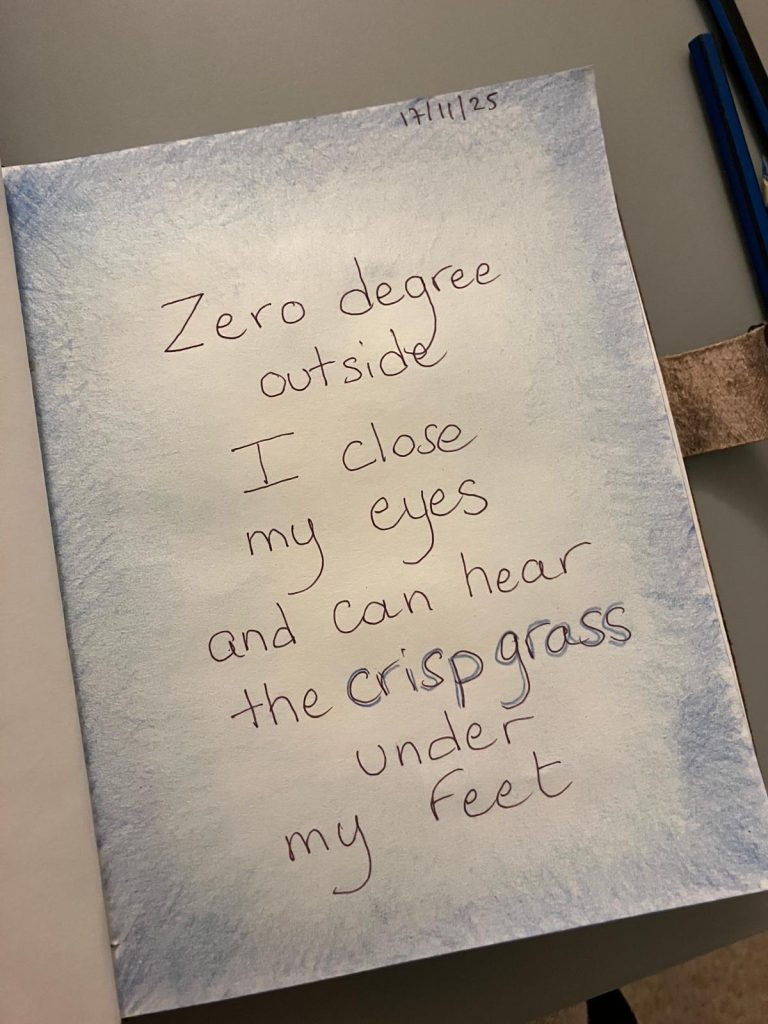 17/11/25
Zero degree
outside
I close
my eyes
and can hear
the crisp grass
under
my feet